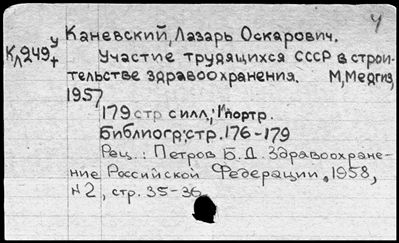 У
Каневский, Лазарь Оскарович.
Кл249 У
т
Участие трудящихся СССР в строи-
тельстве здравоохранения. М, Медгиз,
1957
179 стр с илл.; 1 портр.
Библиогр: стр. 176-179
Рец.: Петров Б.Д. Здравоохране-
ние Российской Федерации, 1958,
№2, стр. 35-36